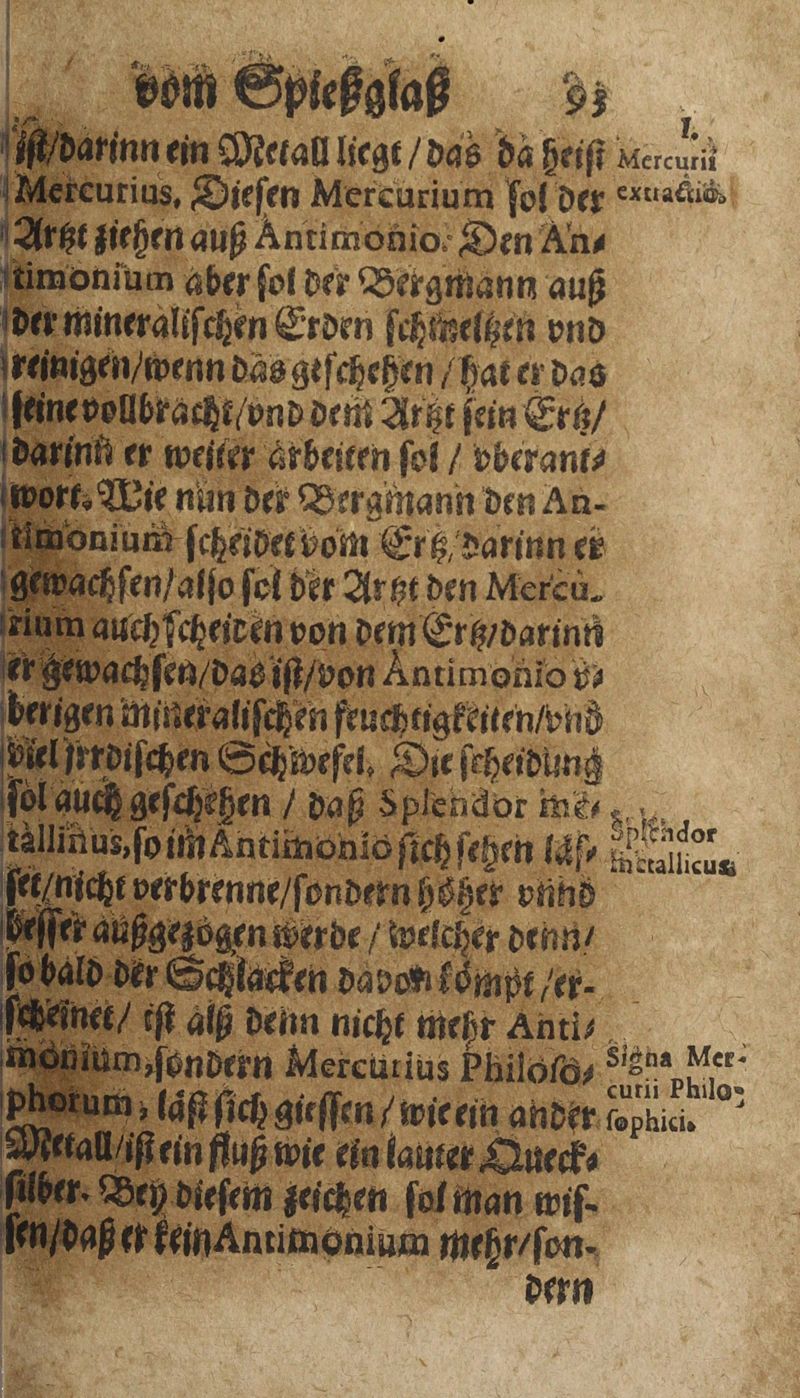 vom Spießglaß 93
ist/darinn ein Metall liegt / das da heist
Mercurius, Diesen Mercurium sol der
Artzt ziehen auß Antimonio. Den An⸗
timonium aber sol der Bergmann auß
der mineralischen Erden schmeltzen vnd
reinigen/wenn das geschehen / hat er das
seine vollbracht/vnd dem Artzt sein Ertz/
darinn er weiter arbeiten sol / vberant⸗
wort. Wie nun der Bergmann den An-
timonium scheidet vom Ertz, darinn er
gewachsen/also sol der Artzt den Mercu-
rium auch scheiden von dem Ertz/darinn
er gewachsen/das ist/von Antimonio v⸗
berigen mineralischen feuchtigkeiten/vnd
viel jrrdischen Schwefel. Die scheidung
sol auch geschehen / daß Splendor me⸗
tallinus, so im Antimonio sich sehen läs⸗
set/nicht verbrenne/sondern höher vnnd
besser außgezogen werde / welcher denn/
so bald der Schlacken davon kömpt /er-
scheinet/ ist alß denn nicht mehr Anti⸗
monium, sondern Mercurius Philoso⸗
phorum, läst sich giessen / wie ein ander
Metall/ist ein fluß wie ein lauter Queck⸗
silber. Bey diesem zeichen sol man wis-
sen/daß er kein Antimonium mehr/son-
dern
I.
Mercurii
extractio.
Splendor
metallicus
Signa Mer-
curii Philo-
sophici.